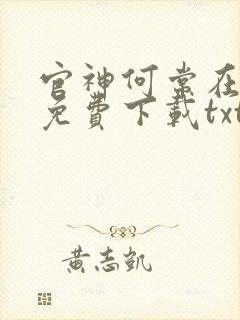 官神何常在
免費下載txt
黃志凱